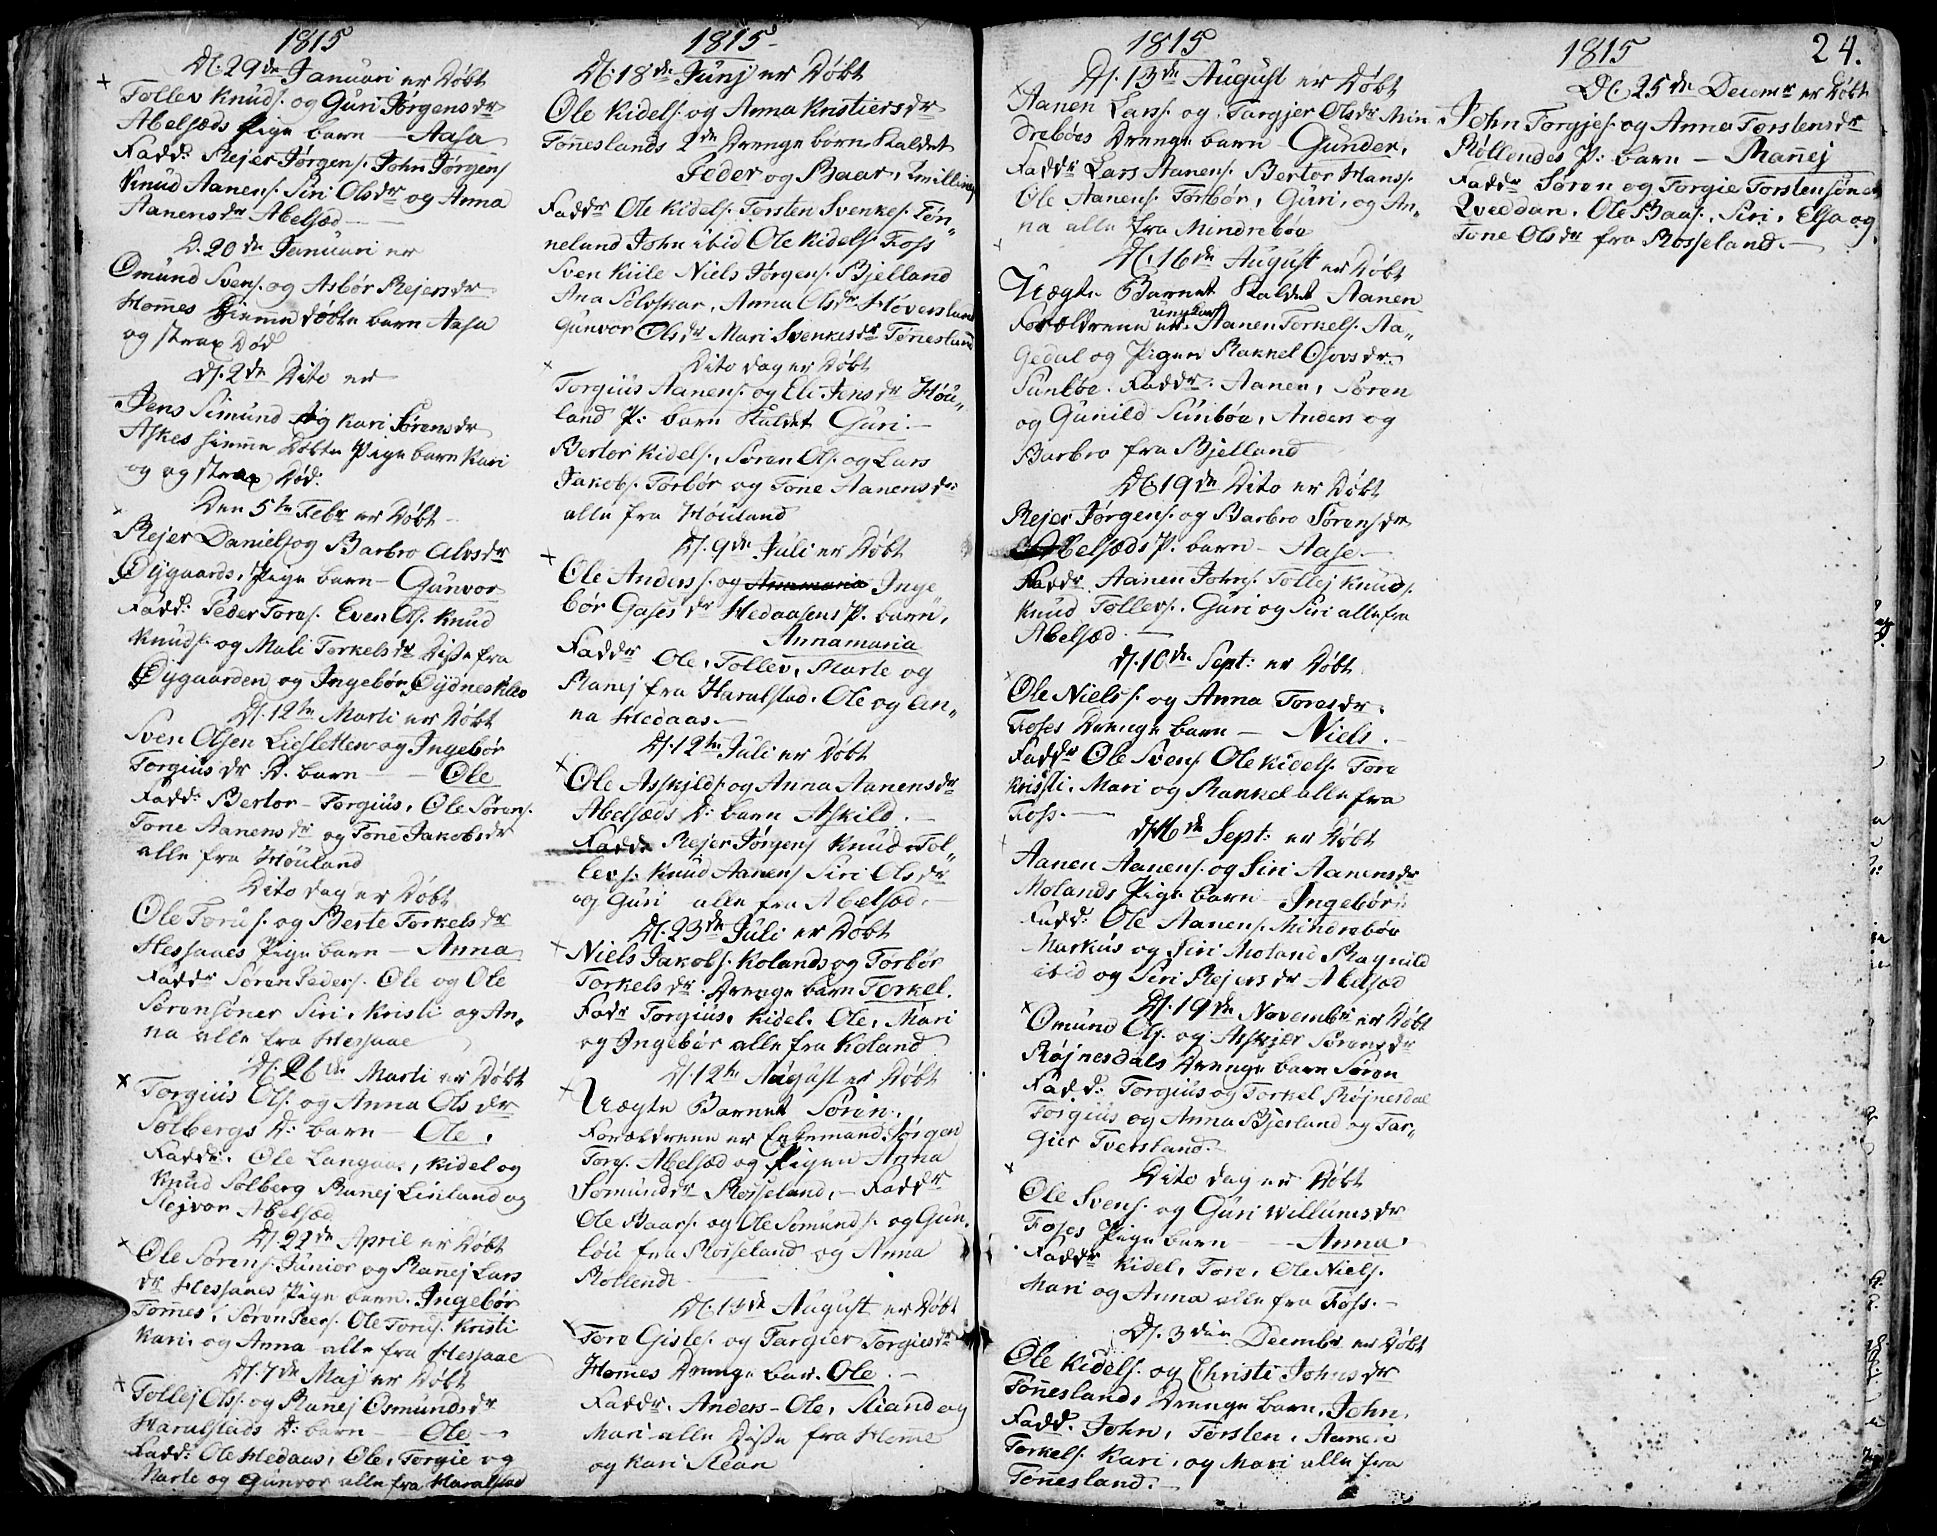 1815
D. 29de Januari er Døbt
Tollev Knuds. og Guri Jørgensdr
Abelsæds Pige barn — Aasa
Fadd: Rejer Jørgens. John Jørgens
Knud Aanens. Siri Olsdr og Anna
Aanensdr Abelsæd —
D. 20de Januari er
Omund Svens. og Asbør Rejersdr
Homes hiemme døbte barn Aasa
og strax Død
D. 2de Dito er
Jens Simund og Kari Sørensdr
Askes hiemme Døbte Pige barn Kari
og og strax Død:
Den 5te Febr er Døbt
Rejer Daniels og Barbro Alvsdr
Øygaards, Pige barn — Gunvor
Fadd: Peder Tores. Even Ols. Knud
Knuds. og Mali Torkelsdr Disse fra
Øygaarden og Ingebør Øydneskleo
D. 12te Marti er Døbt
Sven Olsen Liesletten og Ingebør
Torgiusdr D. barn — Ole
Fadd: Bertor — Torgius, Ole Sørens.
Tone Aanensdr og Tone Jakobsdr
alle fra Høuland
Dito dag er Døbt
Ole Torus. og Berte Torkelsdr
Hessaaes Pige barn — Anna
Faddr Søren Peders. Ole og Ole
Sørensöner Siri, Kristi og An„
na alle fra Hessaae
D. 26de Marti er Døbt
Torgius Ols. og Anna Olsdr
Solbergs D: barn — Ole.
Faddr. Ole Langaa., Kidel og
Knud Solberg Ranej Linland og
Rejvor Abelsæd
D. 22de April er Døbt
Ole Sørens. Junior og Ranej Lars
dr Hessaaes Pige barn. Ingebør
Tomes, Søren Peers. Ole Tores. Kristi
Kari, og Anna alle fra Hessaae
D. 7de Maj er Døbt
Tollej Ols. og Ranej Osmundsdr
Haralstads D: barn — Ole —
Fadd: Ole Hedaas, Ole, Torgie og
Marte og Gunvor alle fra Haralstad
1815
D. 18de Junj er Døbt
Ole Kidels. og Anna Kristiersdr
Toneslands 2de Drenge børn Kaldet
Peder og Baar, Tvilling
Faddr Ole Kidels. Torsten Svenkes. Tøn„
neland John ibid Ole Kidels. Foss
Sven Kiile Niels Jørgens. Bjelland
Ana Sølvskar, Anna Olsdr Høversland
Gunvor Olsdr Mari Svenkesdr Tønesland
Dito dag er Døbt
Torgius Aanens. og Eli Jensdr Høu„
land P: barn Kaldet Guri. —
Bertor Kidels., Søren Ols. og Lars
Jakobs. Torbør og Tone Aanensdr
alle fra Høuland
D. 9de Juli er Døbt
Ole Anders s. og Annamaria Inge
bør Gasesdr Hedaasens P. barn,
Annamaria
Faddr Ole, Tollev, Marte og
Ranej fra Haralstad. Ole og An„
na Hedaas. —
D. 12te Juli er Døbt
Ole Asskilds. og Anna Aanensdr
Abelsæds D: barn Askild. —
Fadde Rejer Jørgens Knud Tol„
levs. Knud Aanens Siri Olsdr
og Guri alle fra Abelsæd. —
D. 23de Juli er Døbt
Niels Jakobs. Kolands og Torbør
Torkelsdr. Drenge barn Torkel.
Fadr Torgius, Kidel, Ole, Mari
og Ingebør alle fra Koland
D. 12te August er Døbt
Uægte Barnet Sørin.
Forældrene er Enkemand Jørgen
Tors. Abelsæd og Pigen Anna
Somundr Rosseland. — Faddr
Ole Baars. og Ole Somunds. og Gun„
løu fra Rosseland og Anna
Røllend
D. 13de August er Døbt
Tore Gisles. og Targier Torgiusdr
Homes Drenge bar. Ole. —
Faddr. Anders — Ole, Aiand og
Mari alle Disse fra Home
og Kari Rean
1815
D. 13de August er Døbt
Aanen Larss. og Targjer Olsdr Min
drebøes Drenge barn — Gunder,
Faddr Lars Aanens. Bertor Hanss.
Ole Aanens. Torbør, Guri, og An„
na alle fra Mindrebøe
D. 16de August er Døbt
Uægte Barnet Kaldet Aanen
Forældrene er ungkar Aanen Torkels. Aa„
gedal og Pigen Raknel Osovsdr
Sunbøe. Faddr. Aanen, Søren
og Gunild Sunbøe, Anders og
Barbro fra Bjelland
D. 19de Dito er Døbt
Rejer Jørgens. og Barbro Sørensdr
Abelsæds P. barn — Aase. —
Faddr. Aanen Johns. Tollej Knuds.
Knud Tollevs. Guri og Siri alle fra
Abelsæd. —
D. 10de Sept: er Døbt
Ole Niels s. og Anna Toresdr.
Foses Drenge barn — Niels. —
Faddr Ole Svens Ole Kidels. Tore
Kristi. Mari og Rankel alle fra
Foss. —
D. 16de Sept: er Døbt
Aanen Aanens. og Siri Aanensdr
Molands Pige barn Ingebør:
Fadd: Ole Aanens. Mindrebøe
Markus og Siri Moland Ragnild
ibid og Siri Rejersdr Abelsæd
D. 19de Novembr er Døbt
Omund Ols. og Asskjer Sørensdr
Røjnesdals Drenge barn Søren
Fadd: Torgius og Torkel Røjnesdal
Torgius og Anna Bjerland og Tar„
gier Tvetsland. —
Dito dag er Døbt
Ole Svens. og Guri Willumsdr
Foses Pige barn — Anna.
Faddr Kidel, Tore, Ole Niels.
Mari og Anna alle fra Foss. —
D. 3die Decembr er Døbt
Ole Kidels. og Christi Johnsdr
Tøneslands Drenge barn. John.
Fadd. John, Torsten, Aanen
Torkels. Kari, og Mari alle fra
Tønesland. —
1815
24.
D. 25de Decemr er Døbt
John Torgjes. og Anna Torstensdr
Røllendes P: barn — Ranej
Faddr Søren og Torgie Torstensöner
Qveddan. Ole Baas., Siri, Elsa og
Tone Olsdr fra Rosseland. —